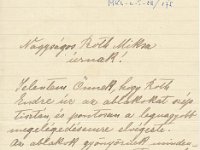 Nagyságos Roth Miksa
úrnak!
Jelentem Önnek, hogy Roth
Endre úr az ablakokat szép
tisztán, és pontosan a legnagyobb
megelégedésemre elvégezte.
Az ablakok gyönyörűek minden-